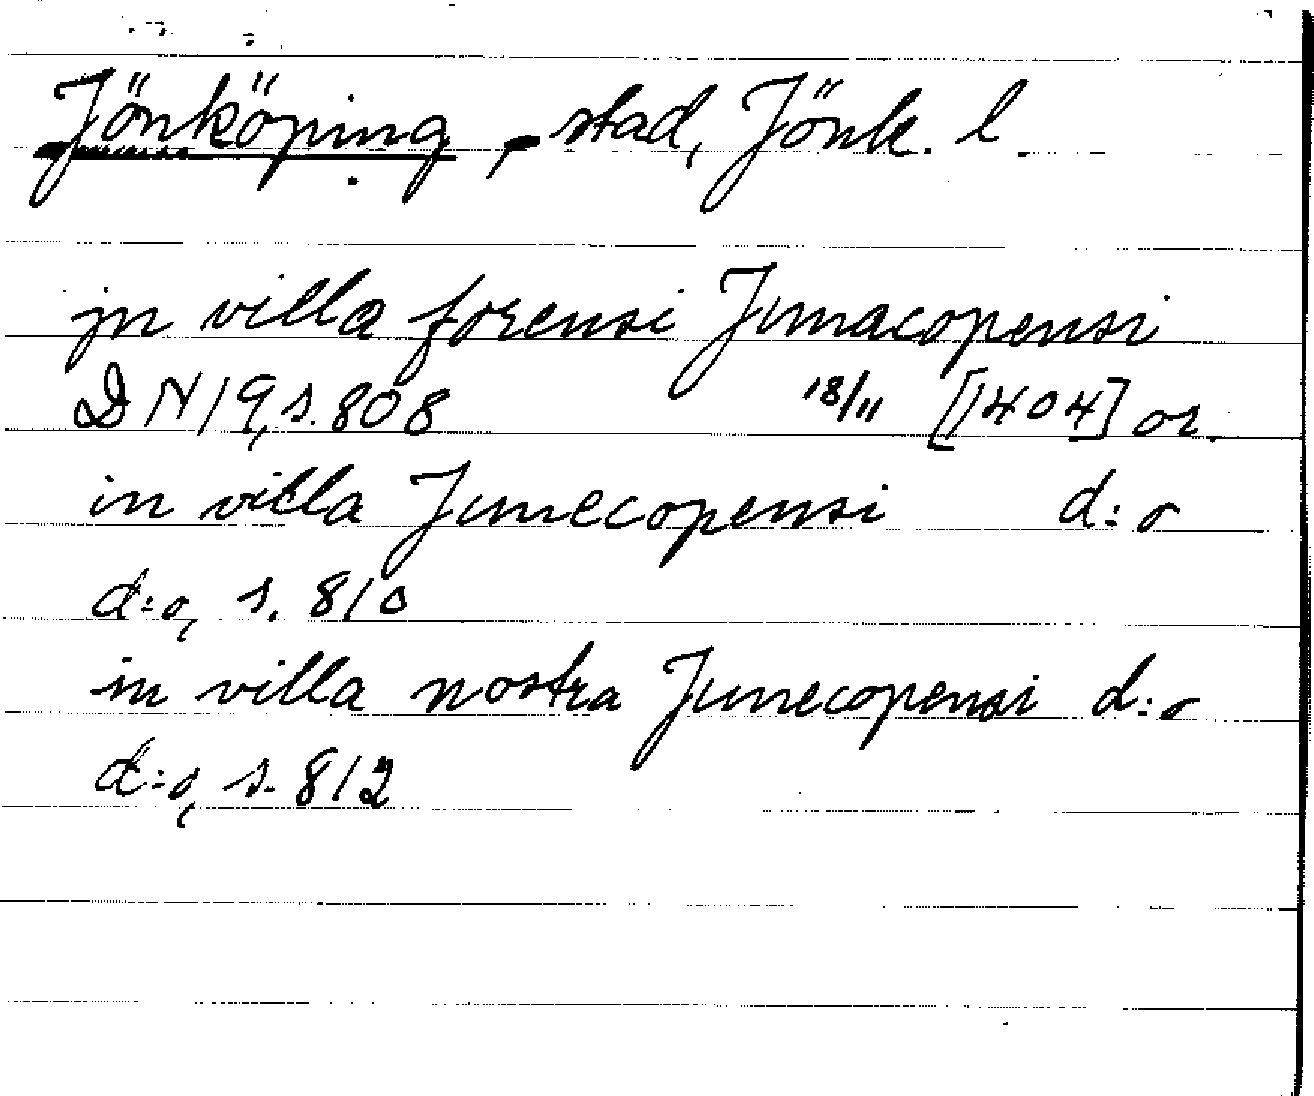 Jönköping, stad, Jönk. l.
jn villa forensi Junacopensi
DN 19, s. 808 18/11 [1404] or.
in villa Junecopensi d:o
d:o, s. 810
in villa nostra Junecopensi d:o
d:o, s. 812